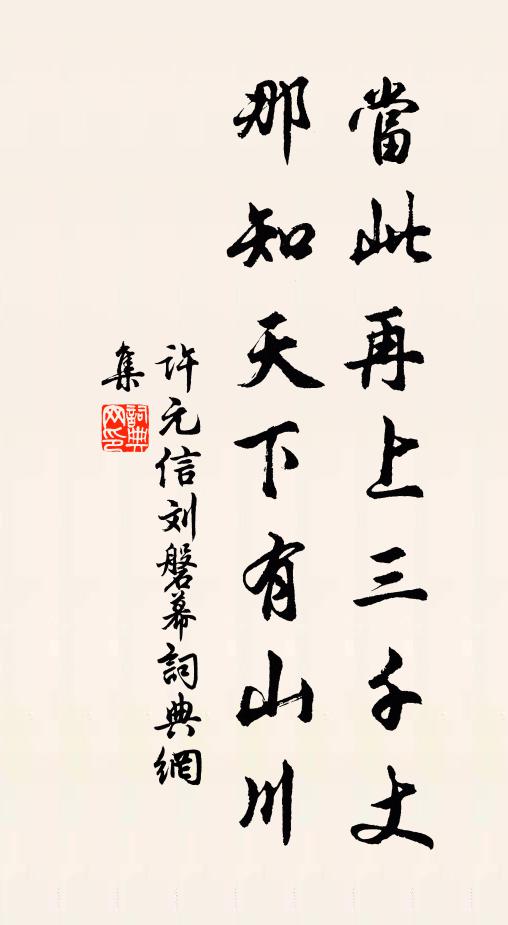 當此再上三千丈
那知天下有山川
许元信刘磐幕詞典網
集
詞典网印